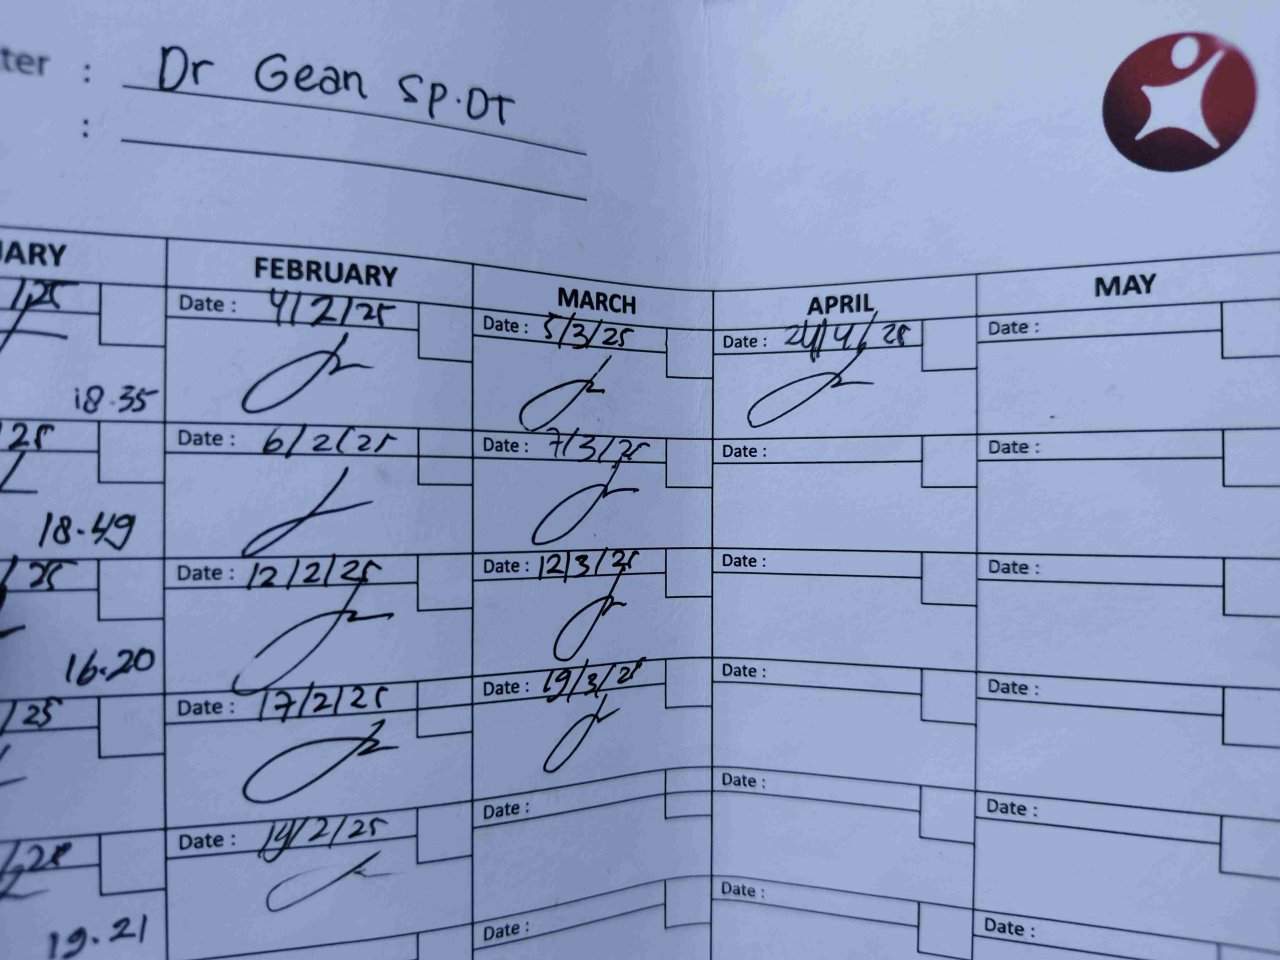 ter : Dr Gean SP.OT
:
UARY FEBRUARY MARCH APRIL MAY
/25 Date : 4/2/25 Date : 5/3/25 Date : 24/4/25 Date :
18.35
25 Date : 6/2/25 Date : 7/3/25 Date : Date :
18.49
/25 Date : 12/2/25 Date : 12/3/25 Date : Date :
16.20
/25 Date : 17/2/25 Date : 19/3/25 Date : Date :
/25 Date : 19/2/25 Date : Date : Date :
19.21
Date : Date : Date :